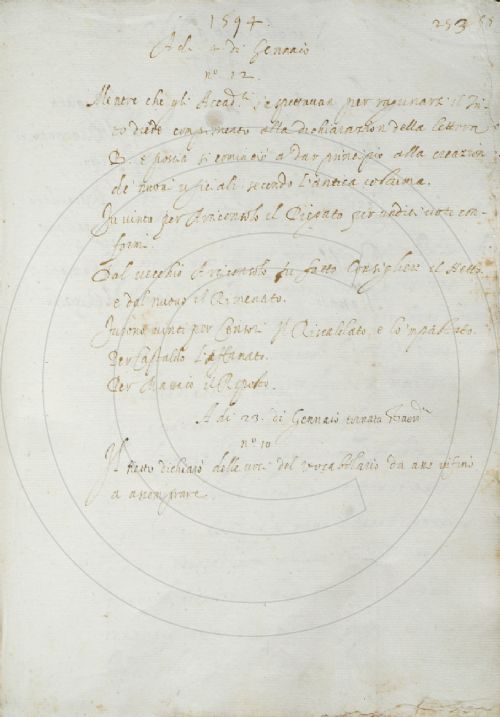 1594.
253
A dì 4 di Gennaio
nº 12.
Mentre che gli Accad.ci s'espettavan per ragunarsi il Tri
to diede compimento alla dichiarazion della lettera
B. e poscia si cominciò a dar principio alla creazion
de nuovi uficiali secondo l'antica costuma.
Fu vinto per Arciconsolo il per voti con
formi.
Dal vecchio Arciconsolo fu fatto Consigliere il Netto
e dal nuovo il Rimenato.
Furono vinti per Censori Il Riscaldato, e lo 'mpastato.
Per Castaldo l'Affannato.
Per Massaio il Riposto.
A dì 23. di Gennaio tornata
nº 10
Il Netto dichiarò delle voci del vocabolario da ane infino
a